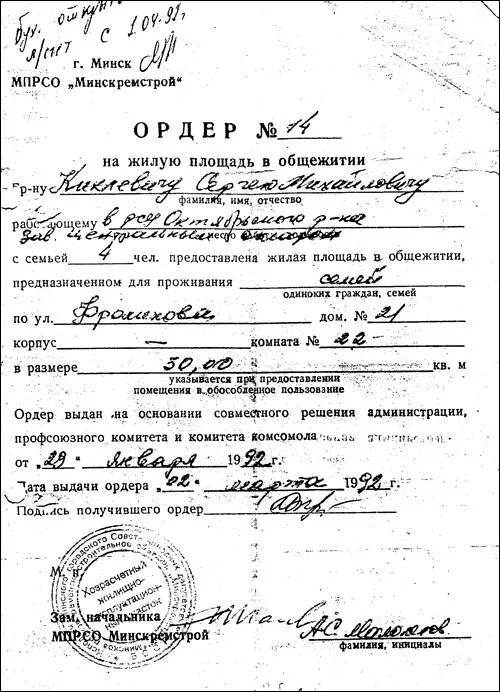 с 1.04.92г.
г. Минск
МПРСО „Минскремстрой"
ОРДЕР № 14
на жилую площадь в общежитии
гр-ну Киклевичу Сергею Михайловичу
фамилия, имя, отчество
работающему в РСУ Октябрьского р-на
Зав. центральным складом
с семьей 4 чел. предоставлена жилая площадь в общежитии,
предназначенном для проживания семей
одиноких граждан, семей
по ул. дом. № 21
корпус — комната № 22
в размере 50,00 кв. м
указывается при предоставлении
помещения в обособленное пользование
Ордер выдан на основании совместного решения администрации,
профсоюзного комитета и комитета комсомола
от „29" января 1992 г.
Дата выдачи ордера „02" марта 1992 г.
Подпись получившего ордер
М. п.
Хозрасчетный
жилищно-
эксплуатацион-
ный участок
Зам. начальника
МПРСО Минскремстрой
фамилия, инициалы